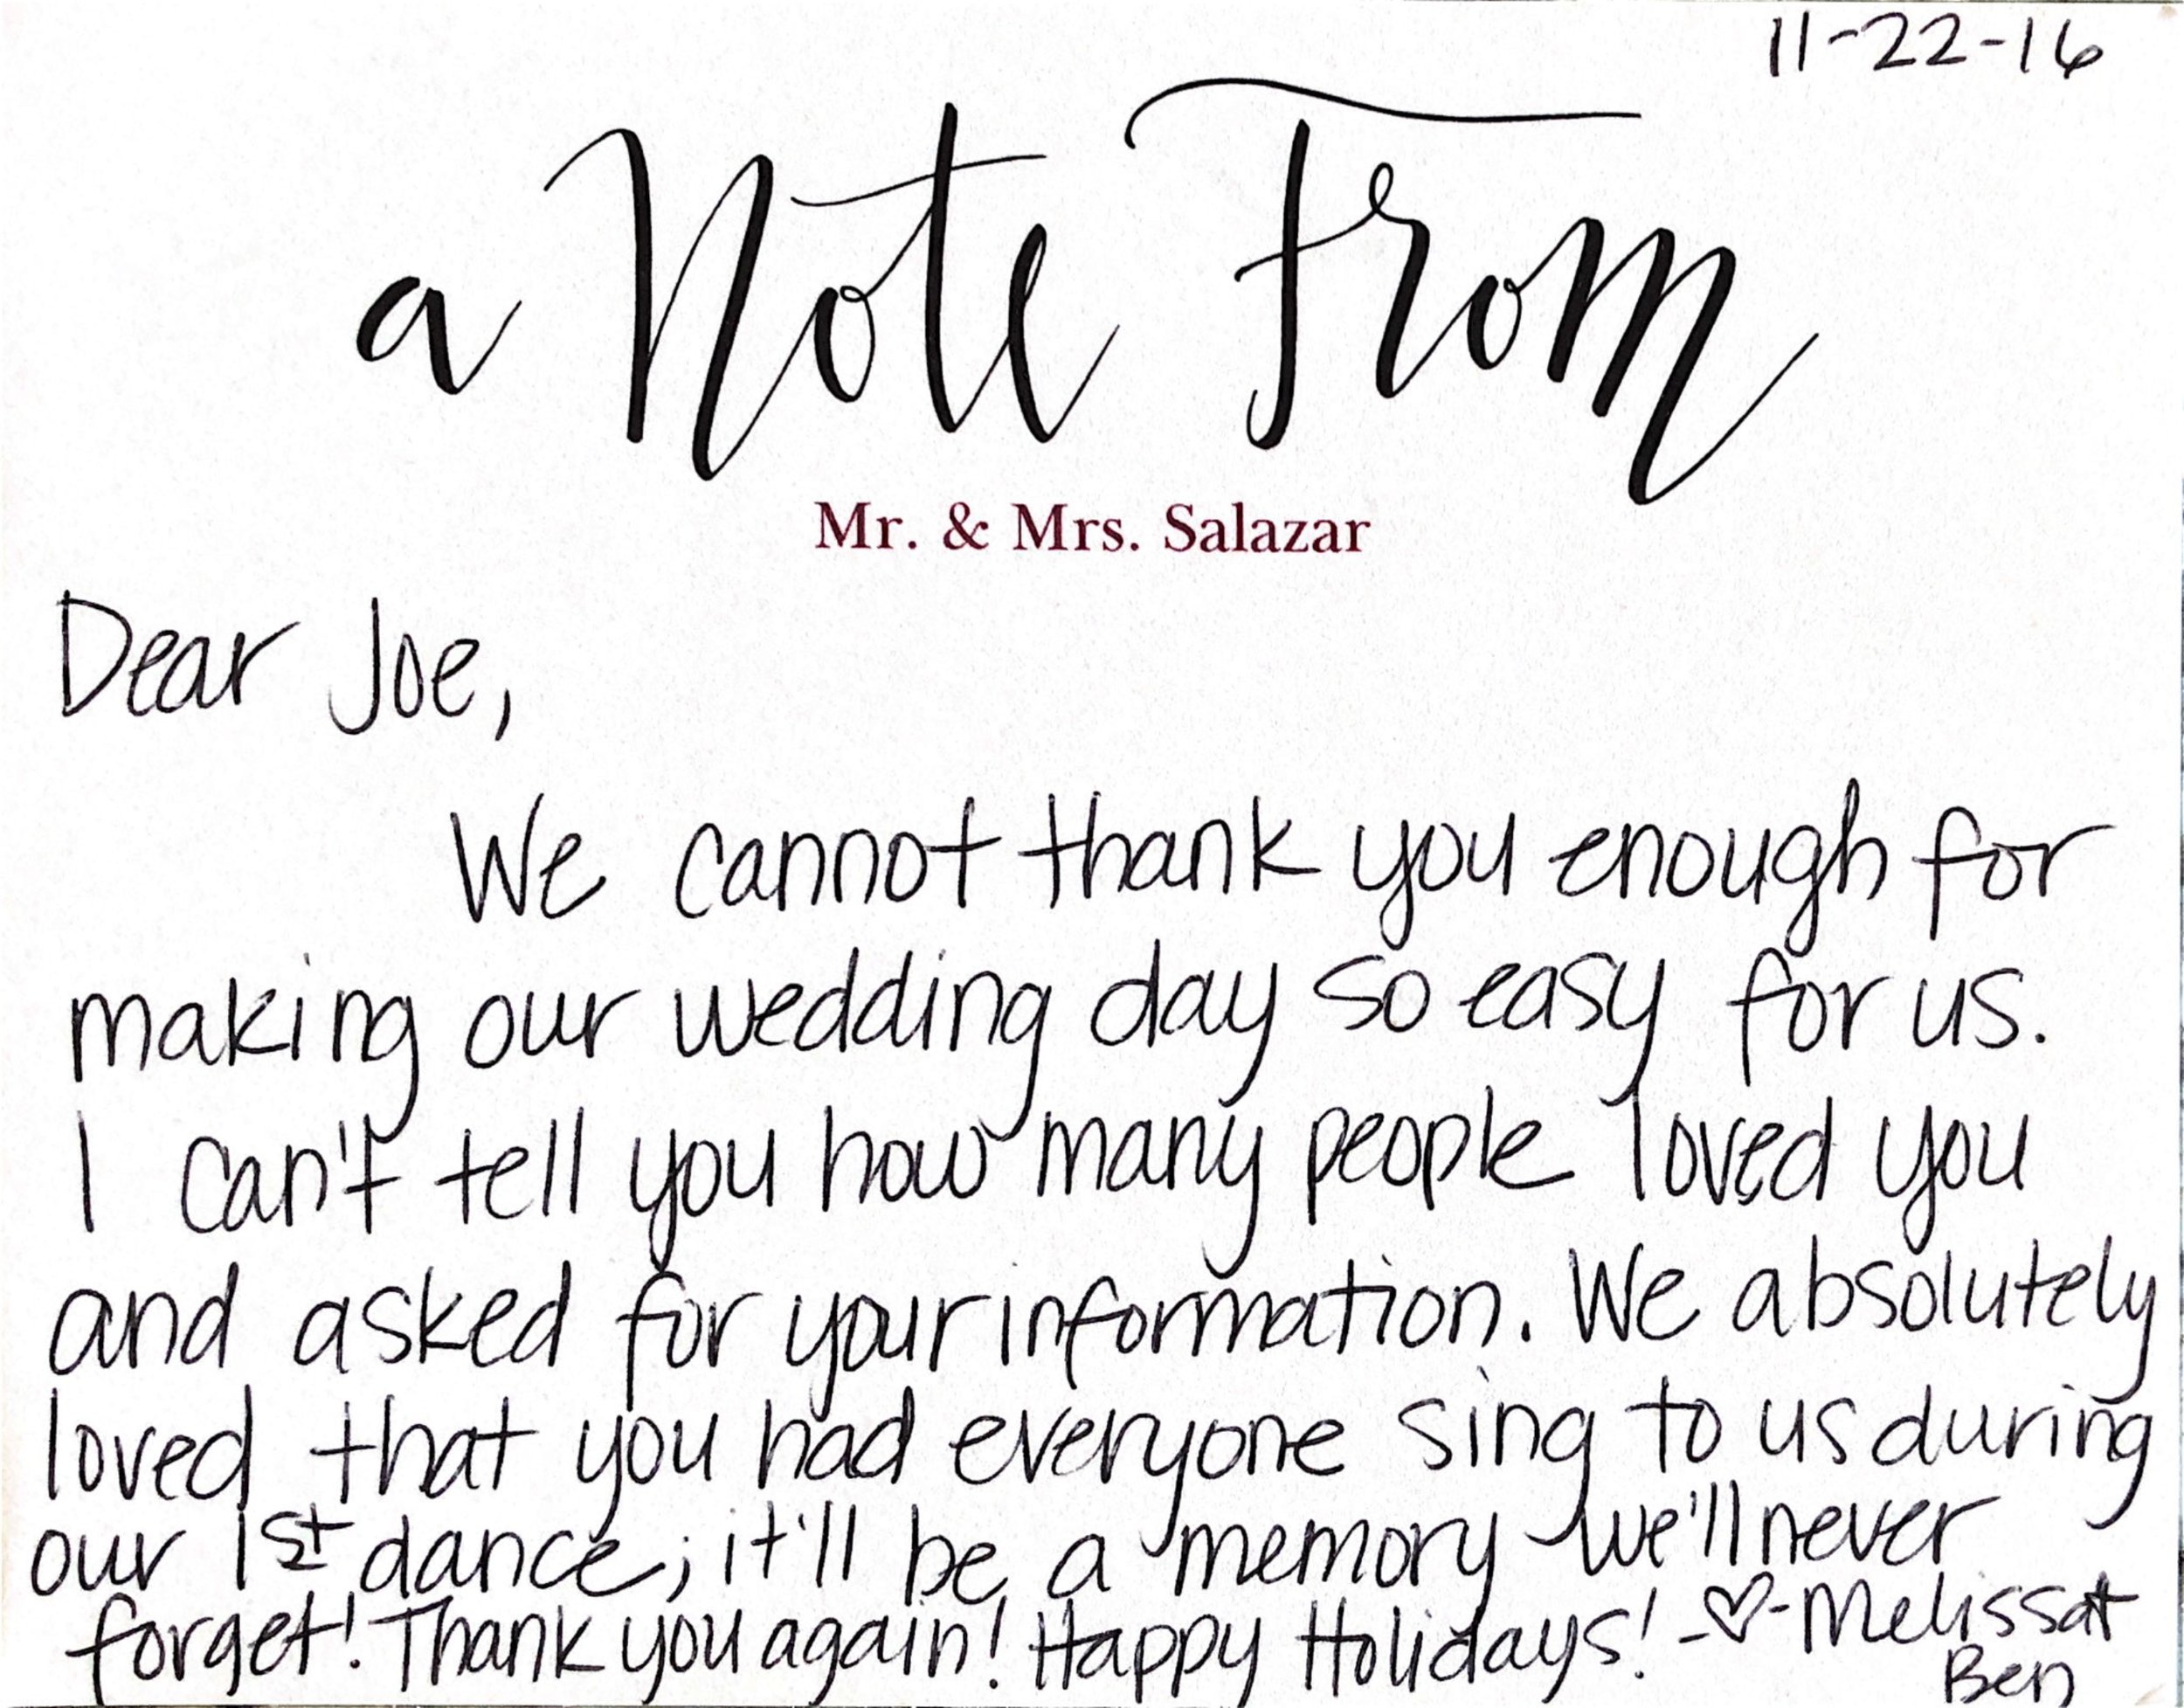 11-22-16
a Note From
Mr. & Mrs. Salazar
Dear Joe,
We cannot thank you enough for
making our wedding day so easy for us.
I can't tell you how many people loved you
and asked for your information. We absolutely
loved that you had everyone sing to us during
our 1st dance; it'll be a memory we'll never
forget! Thank you again! Happy Holidays! -♡- Melissa +
Ben